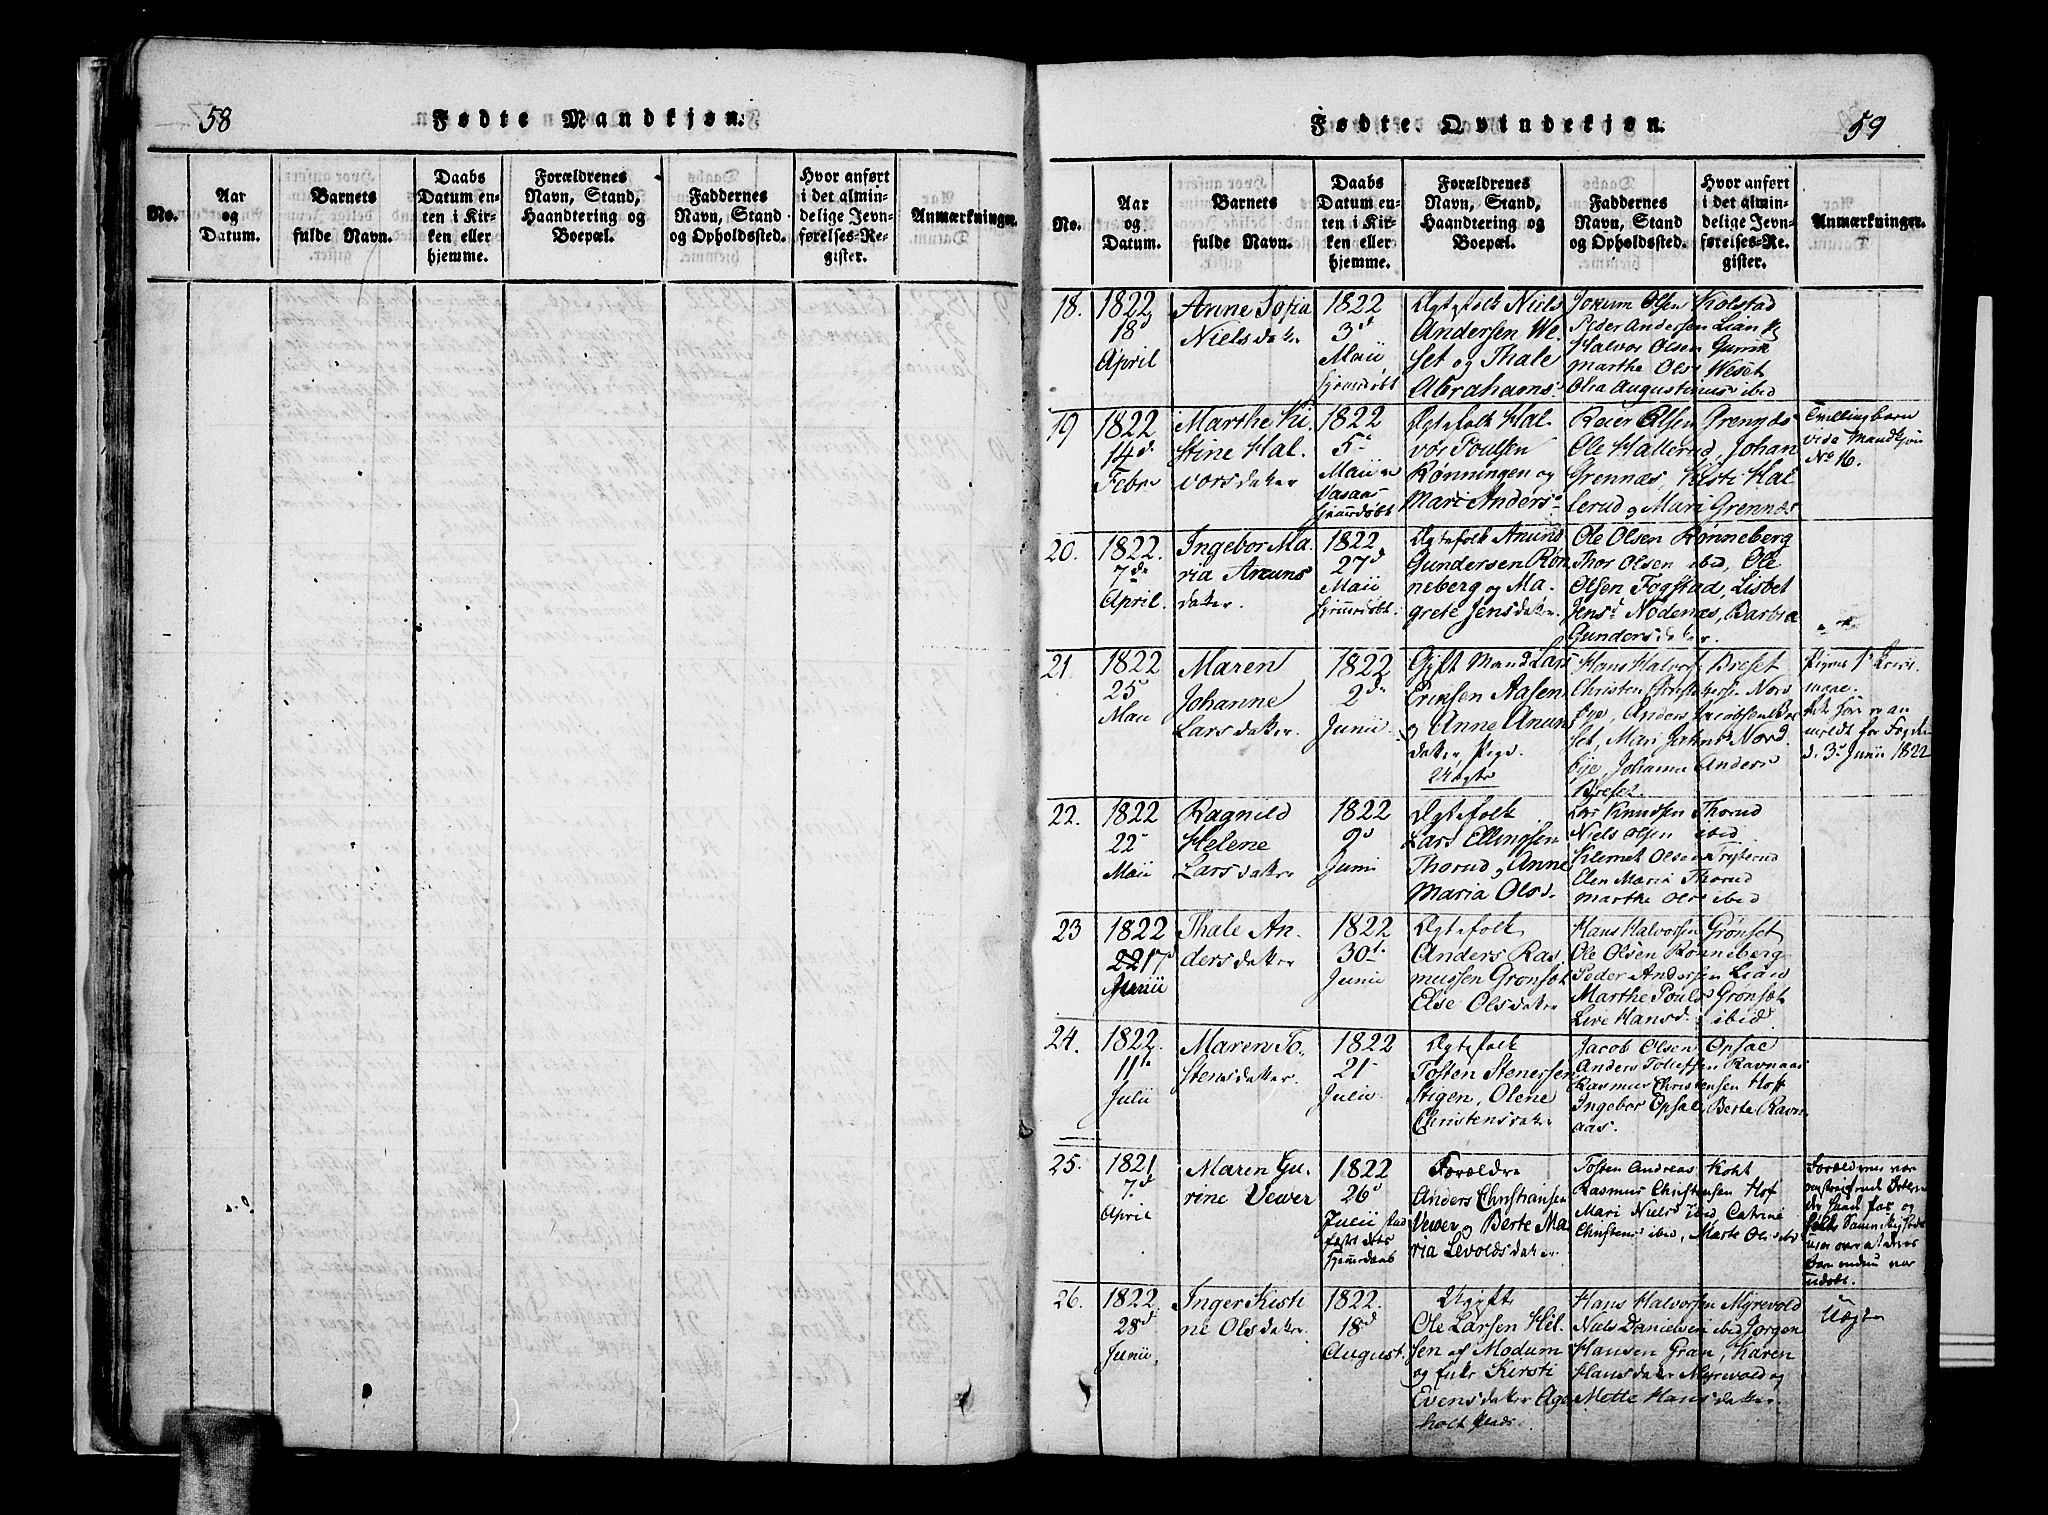 58
Fødte Mandkjøn.
No.
Aar
og
Datum.
Barnets
fulde Navn.
Daabs
Datum en-
ten i Kir-
ken eller
hjemme.
Forældrenes
Navn, Stand,
Haandtering og
Boepæl.
Faddernes
Navn, Stand
og Opholdssted.
Hvor anført
i det almin-
delige Jevn-
førelses-Re-
gister.
Anmærkninger.
Fødte Qvindekjøn.
59
No.
Aar
og
Datum.
Barnets
fulde Navn.
Daabs
Datum en-
ten i Kir-
ken eller
hjemme.
Forældrenes
Navn, Stand,
Haandtering og
Boepæl.
Faddernes
Navn, Stand
og Opholdssted.
Hvor anført
i det almin-
delige Jevn-
førelses-Re-
gister.
Anmærkninger.
18.
1822
18d
April
Anne Sofia
Nielsdatter
1822
3d
Maii
hjemdøbt
Ægtefolk Niels
Andersen We-
set og Thale
Abrahams
Jokum Olsen Kolstad
Peder Andersen Lian
Halvor Olsen
Marthe Ols Weset
Olia Augustinus ibid
19
1822
14de
Febr
Marthe Ki-
stine Hal-
vorsdatter
1822
5
Maii
Vasaas
hjemdøbt
Ægtefolk Hal-
vor Poulsen
Rønningen og
Mari Anders
Reier Olsen Grennes
Ole Hallerud, Johan
Grennæs, Kisti Hal-
lerud og Mari Grennæs
Tvillingbarn
vide Mandkjøn
No 16.
20.
1822.
7de
April.
Ingebor Ma-
ria Amuns
datter.
1822
27d
Maii
hjemdøbt.
Ægtefolk Amund
Gundersen Røn
neberg og Ma-
grete Jensdatter.
Ole Olsen Rønneberg
Thor Olsen ibid, Ole
Olsen Fogstad, Lisbet
Jensd Nodenæs, Barbra
Gundersdatter.
21.
1822
25
Mai
Maren
Johanne
Larsdatter.
1822
2de
Junii
Gift Mand Lars
Eriksen Aasen
og Anne Amun
datter Pige
Uægte
Hans Halvors Breset
Christen Christophers Nord
bye, Anders Jacobsen Bre
set, Mari Johns Nord
bye, Johanne Anders
Breset.
Pigens 1d
meldt for Fogden
d. 3d Junii 1822
22.
1822
22
Maii
Ragnild
Helene
Larsdatter
1822
9d
Juni
Ægtefolk
Lars Ellingsen
Thorud, Anne
Maria Olsd.
Lars Knudsen Thorud
Niels Olsen ibid
Klemet Olsen
Elen Maria Thorud
Marthe Ols ibid
23
1822
22 17d
Junii
Thale An-
dersdatter
1822
30te
Junii
Ægtefolk
Anders Ras
mussen Grønset
Else Olsdatter
Hans Halvorsen Grønset
Ole Olsen Rønneberg
Peder Andersen Lian
Marthe Pouls Grønset
Live Hansd. ibid
24.
1822.
11te
Julii
Maren To-
stensdatter.
1822
21
Julii.
Ægtefolk
Tosten Stenersen
Stigen, Olene
Christensdatter
Jacob Olsen Opsal
Anders Tollefsen Ravnaas
Rasmus Christensen Hoff
Ingebor Opsal, Berte Ravn
aas.
25.
1821
7d
April
Maren Gu-
rine Vever
1822
26d
Julii stad
fæstet dets
hjemdaab
Forældre
Anders Christiansen
Vever og Berte Ma
ria Levoldsdatter
Tosten Andreas Koht
Rasmus Christensen Hof
Mari Niels ibid Catrine
Christens ibid, Marte Ols ibid
Forældrene var
udøbt.
26.
1822.
28d
Junii.
Inger Kisti
ne Olsdatter.
1822.
18d
August.
Ugifte
Ole Larsen Hil-
sen af Modum
og Enke Kirsti
Evensdatter Age
holt Plads.
Hans Halvorsen Myrevold
Niels Danielsen ibid Jørgen
Hansen Gran, Karen
Hansdatter Myrevold og
Mette Hansdatter.
Uægte